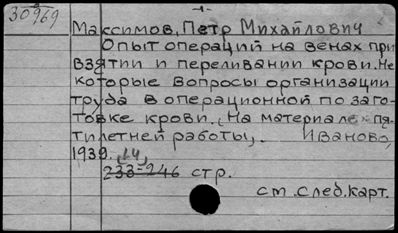 -1-
30969
Максимов, Петр Михайлович
Опыт операций на венах при
взятии и переливании крови. Не
которые вопросы организации
труда в операционной по заго-
товке крови. /На материале пя-
тилетней работы/. Иваново,
1939.
233-246 стр.
см. след. карт.